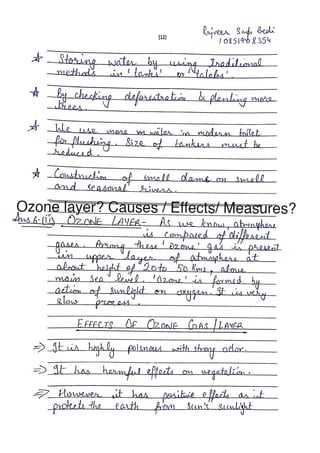 [12]
★ Storing water by using Traditional
methods in 'tanks' or 'talabs'.
★ By checking deforestration & planting more
trees.
★ We use more water in modern toilet
for flushing. Size of tankers must be
reduced.
★ Construction of small dams on small
and seasonal rivers.
Ozone layer? Causes / Effects/ Measures?
OZONE LAYER- As we know, atmosphere
is composed of different
gases. Among these 'ozone' gas is present
in upper layer of atmosphere at
about height of 20 to 50 kms, above
main sea level. 'Ozone' is formed by
action of sunlight on oxygen. It is very
slow process.
EFFECTS OF OZONE GAS / LAYER
⇒ It is highly poisnous with strong odor.
⇒ It has harmful effects on vegetation.
⇒ However, it has positive effects as it
protects the earth from sun's sunlight